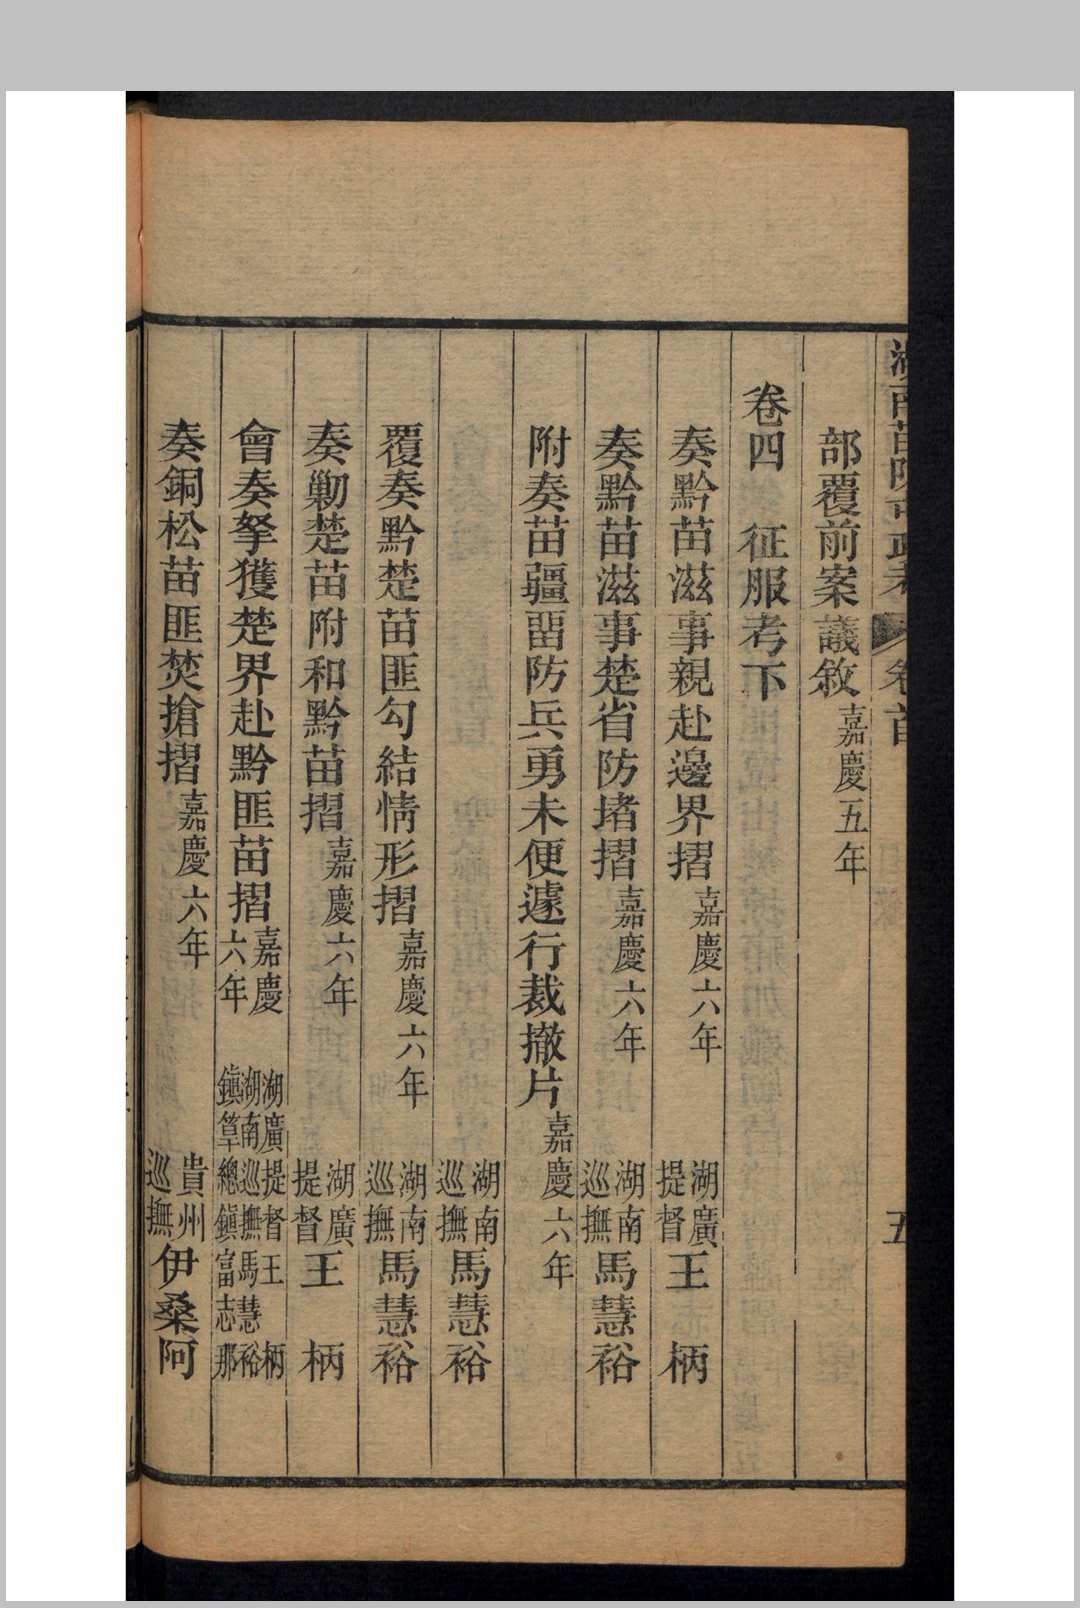 湖南苗防屯政考 卷首 五
部覆前案議敘嘉慶五年
卷四 征服考下
奏黔苗滋事親赴邊界摺嘉慶六年 湖廣提督王 柄
奏黔苗滋事楚省防堵摺嘉慶六年 湖南巡撫馬慧裕
附奏苗疆畱防兵勇未便遽行裁撤片嘉慶六年
湖南巡撫馬慧裕
覆奏黔楚苗匪勾結情形摺嘉慶六年 湖南巡撫馬慧裕
奏勦楚苗附和黔苗摺嘉慶六年 湖廣提督王 柄
會奏拏獲楚界赴黔匪苗摺嘉慶六年 湖廣提督王 柄 湖南巡撫馬慧裕 鎮筸總鎮富志那
奏銅松苗匪焚搶摺嘉慶六年 貴州巡撫伊桑阿